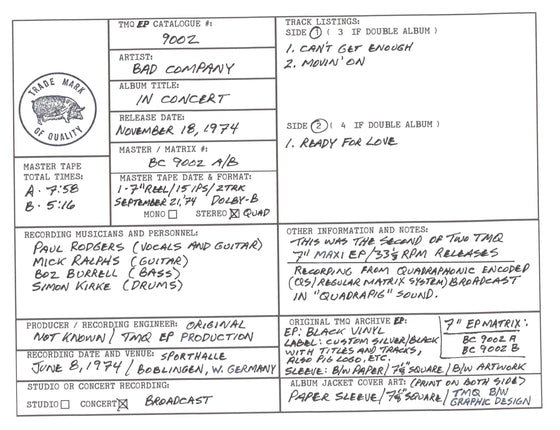 TMQ EP CATALOGUE #:
9002
ARTIST:
BAD COMPANY
ALBUM TITLE:
IN CONCERT
RELEASE DATE:
NOVEMBER 18, 1974
MASTER / MATRIX #:
BC 9002 A/B
TRADE MARK
OF QUALITY
MASTER TAPE
TOTAL TIMES:
A - 7:58
B - 5:16
MASTER TAPE DATE & FORMAT:
1-7" REEL/15 IPS/2TRK
SEPTEMBER 21,'74 DOLBY-B
MONO STEREO QUAD
TRACK LISTINGS:
SIDE 1 ( 3 IF DOUBLE ALBUM)
1. CAN'T GET ENOUGH
2. MOVIN' ON
SIDE 2 ( 4 IF DOUBLE ALBUM)
1. READY FOR LOVE
RECORDING MUSICIANS AND PERSONNEL:
PAUL RODGERS (VOCALS AND GUITAR)
MICK RALPHS (GUITAR)
BOZ BURRELL (BASS)
SIMON KIRKE (DRUMS)
OTHER INFORMATION AND NOTES:
THIS WAS THE SECOND OF TWO TMQ
7" MAXI EP/33⅓ RPM RELEASES
RECORDING FROM QUADRAPHONIC ENCODED
(QS/REGULAR MATRIX SYSTEM) BROADCAST
IN "QUADRAPIG" SOUND.
PRODUCER / RECORDING ENGINEER: ORIGINAL
NOT KNOWN / TMQ EP PRODUCTION
RECORDING DATE AND VENUE: SPORTHALLE
JUNE 8, 1974 / BOBLINGEN, W. GERMANY
STUDIO OR CONCERT RECORDING:
STUDIO CONCERT BROADCAST
ORIGINAL TMQ ARCHIVE EP:
EP: BLACK VINYL
LABEL: CUSTOM SILVER/BLACK
WITH TITLES AND TRACKS,
ALSO PIG LOGO, ETC.
SLEEVE: B/W PAPER/7¼ SQUARE/B/W ARTWORK
7" EP MATRIX:
BC 9002 A
BC 9002 B
ALBUM JACKET COVER ART: (PRINT ON BOTH SIDES)
PAPER SLEEVE/7¼" SQUARE/TMQ B/W
GRAPHIC DESIGN